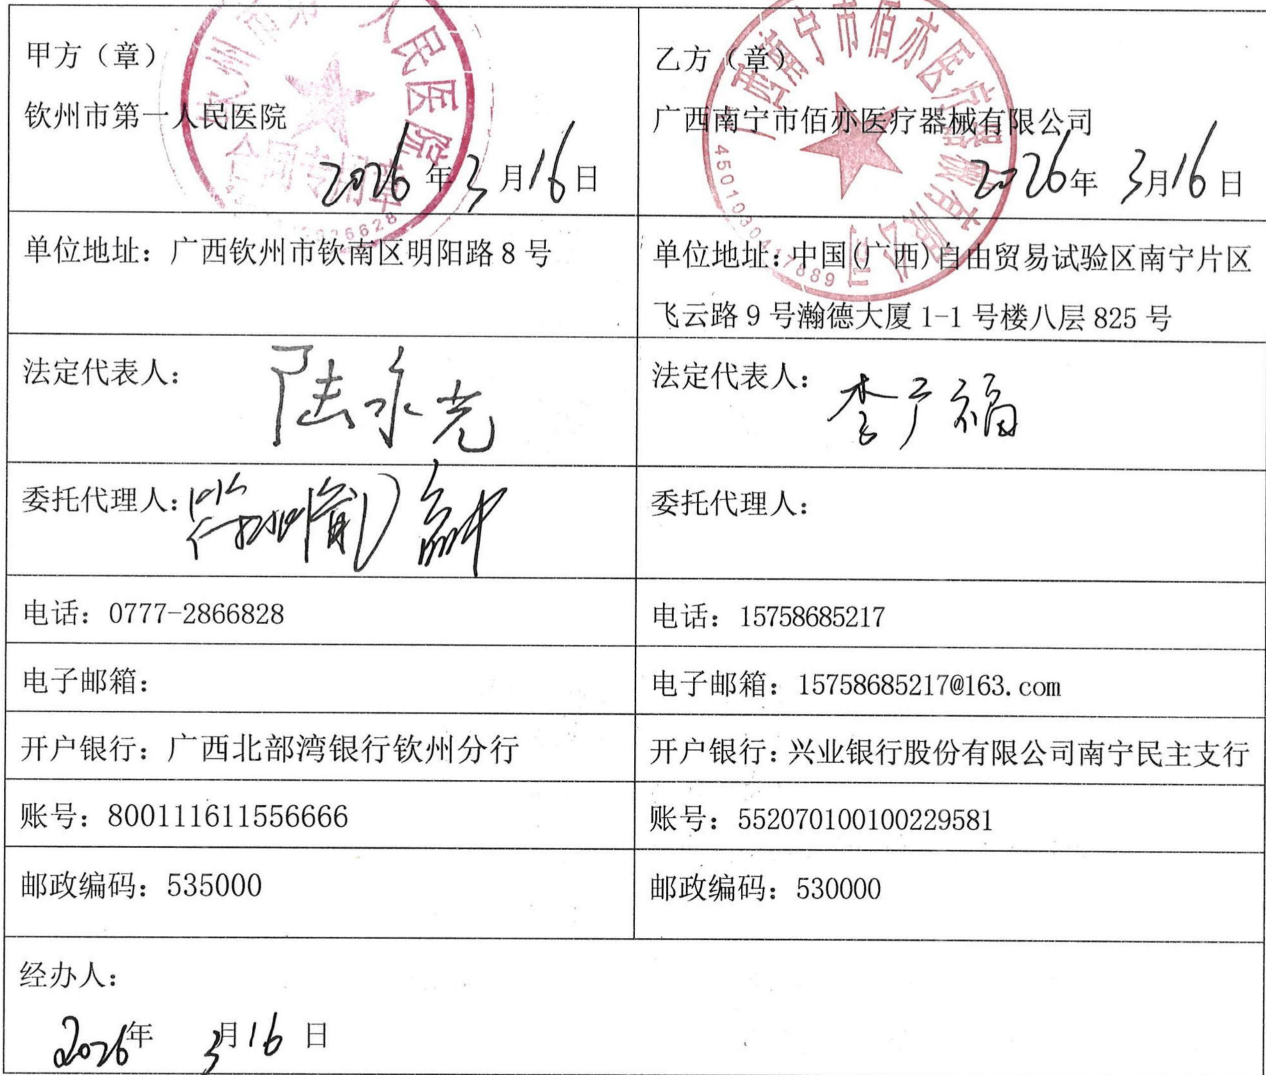 甲方（章）
钦州市第一人民医院
2026年3月16日
乙方（章）
广西南宁市佰亦医疗器械有限公司
2026年3月16日
单位地址：广西钦州市钦南区明阳路8号
单位地址：中国(广西)自由贸易试验区南宁片区
飞云路9号瀚德大厦1-1号楼八层825号
法定代表人：陆永光
法定代表人：李广福
委托代理人：
委托代理人：
电话：0777-2866828
电话：15758685217
电子邮箱：
电子邮箱：15758685217@163.com
开户银行：广西北部湾银行钦州分行
开户银行：兴业银行股份有限公司南宁民主支行
账号：800111611556666
账号：552070100100229581
邮政编码：535000
邮政编码：530000
经办人：
2026年3月16日
人民医院
合同专用章
广西南宁市佰亦医疗器械有限公司
4501030417889